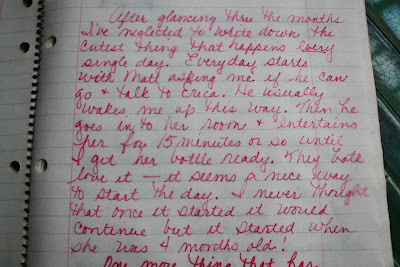 After glancing thru the months
I've neglected to write down the
cutest thing that happens every
single day. Everyday starts
with Matt asking me if he can
go & talk to Erica. He usually
wakes me up this way. Then he
goes in to her room & entertains
her for 15 minutes or so until
I get her bottle ready. They both
love it — it seems a nice way
to start the day. I never thought
that once it started it would
continue but it started when
she was 4 months old!
One more thing that has